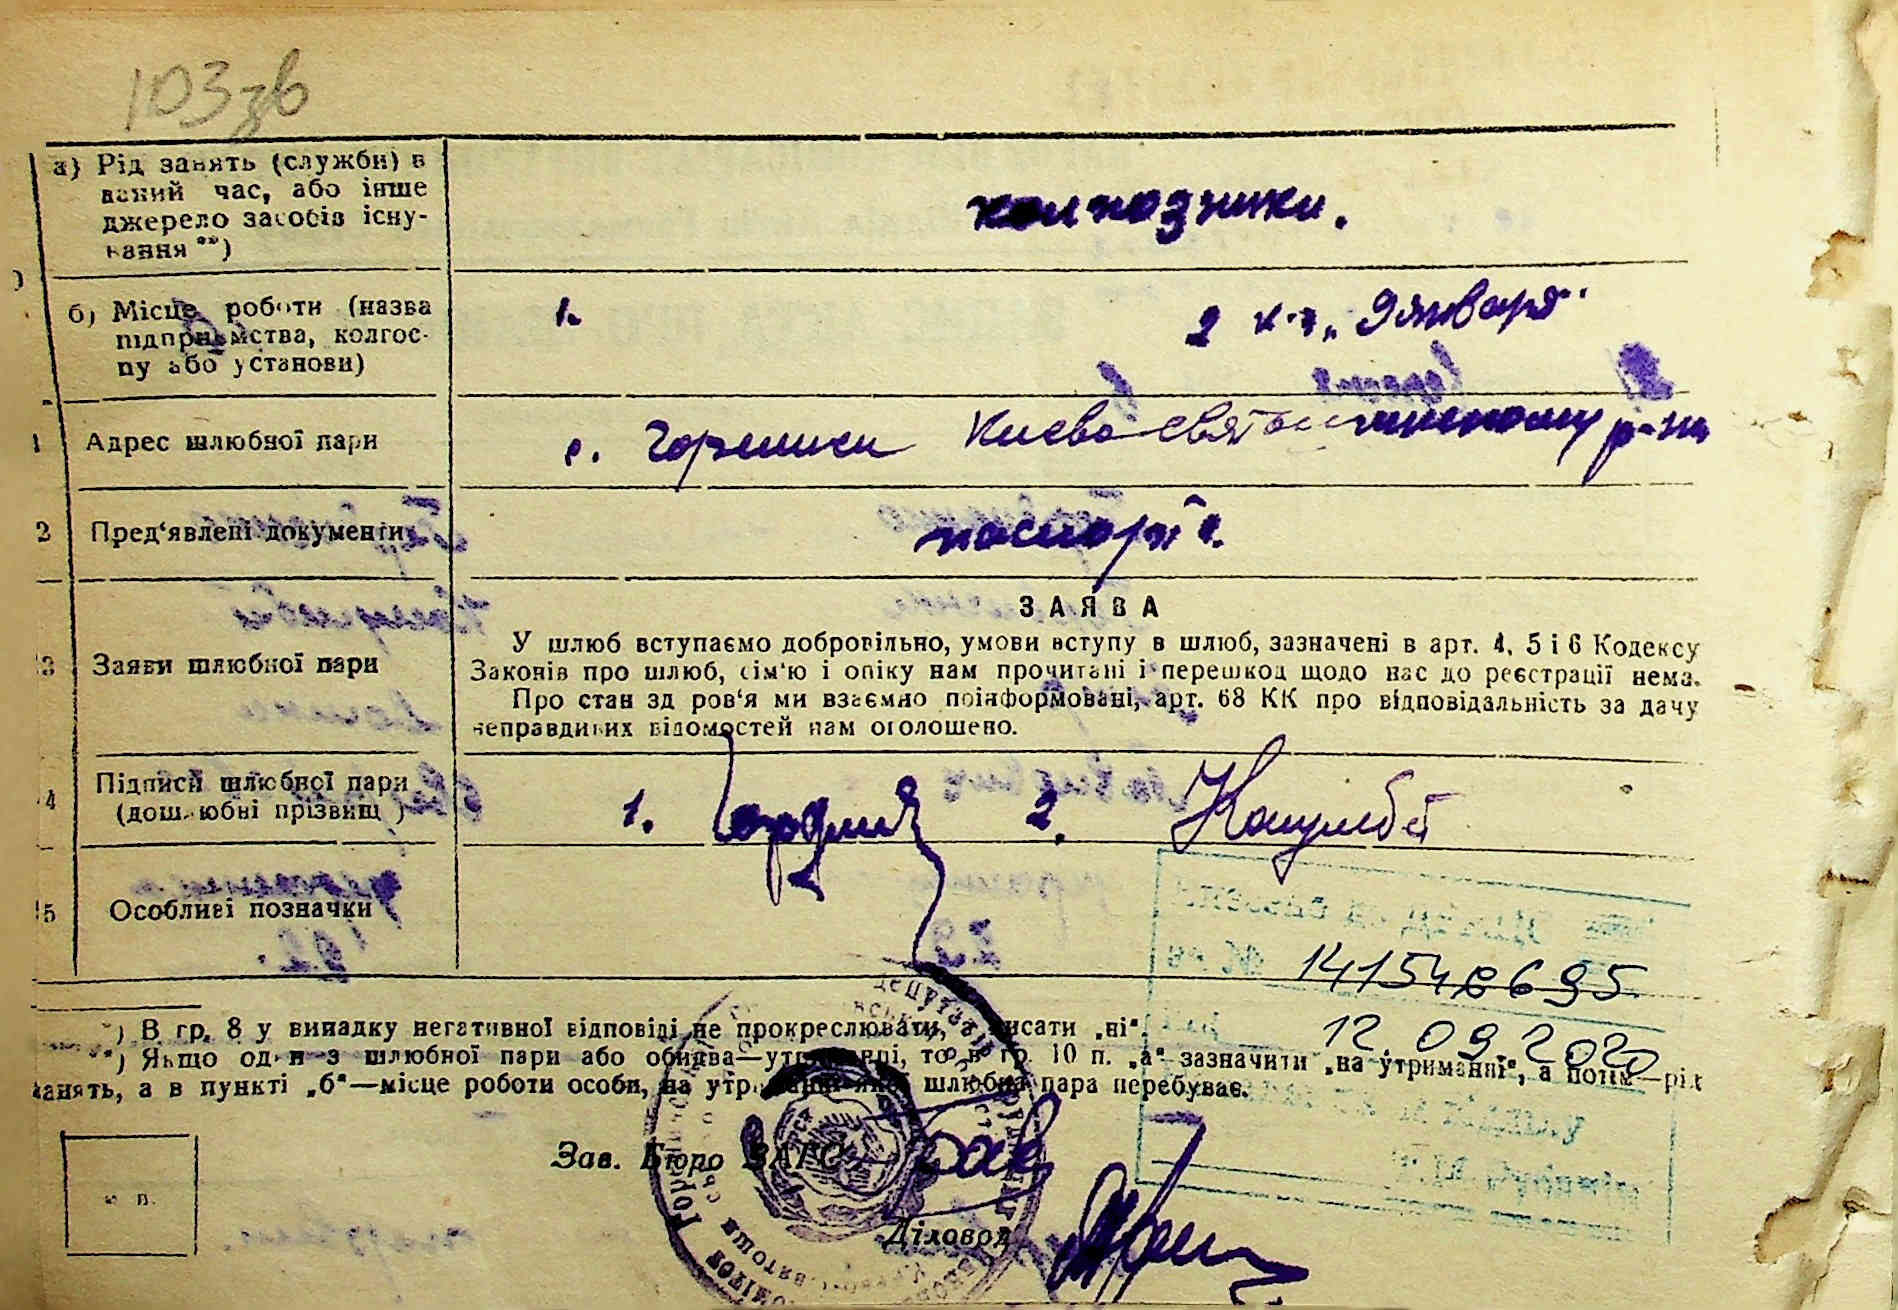 103зв
а) Рід занять (служби) в
даний час, або інше
джерело засобів існу-
вання **)
колхозники.
б) Місце роботи (назва
підприємства, колгос-
пу або установи)
1.
2 к-з „9 января"
1 Адрес шлюбної пари
с. Гореничи Києво-Святошинському р-ну
2 Пред'явлені документи
паспорта.
3 Заяви шлюбної пари
ЗАЯВА
У шлюб вступаємо добровільно, умови вступу в шлюб, зазначені в арт. 4, 5 і 6 Кодексу
Законів про шлюб, сім'ю і опіку нам прочитані і перешкод щодо нас до реєстрації нема.
Про стан здоров'я ми взаємно поінформовані, арт. 68 КК про відповідальність за дачу
неправдивих відомостей нам оголошено.
4 Підписи шлюбної пари
(дошлюбні прізвищ )
1.
2.
5 Особливі позначки
1415486695
12.09.2020
*) В гр. 8 у випадку негативної відповіді не прокреслювати, а писати „ні".
**) Якщо один з шлюбної пари або обидва—утриманці, то в гр. 10 п. „а" зазначити „на утриманні", а потім—рід
занять, а в пункті „б"—місце роботи особи, на утриманні якої шлюбна пара перебуває.
Зав. Бюро ЗАГС
Діловод
м. п.